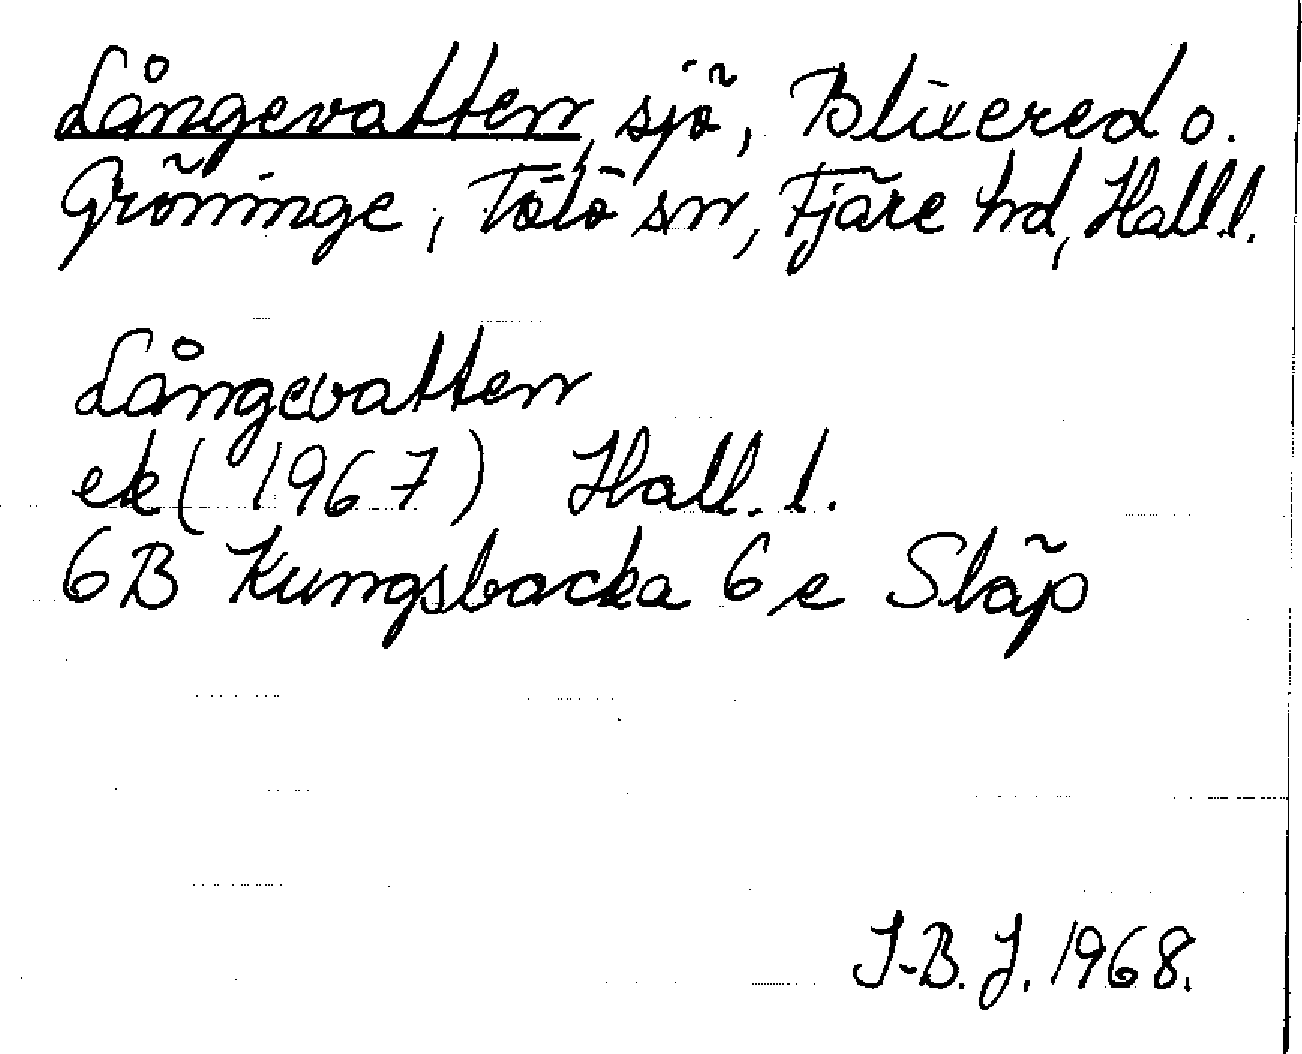 Långevatten, sjö, Blixered o.
Gröninge, Tölö sn, Fjäre hd, Hall.l.
Långevatten
ek (1967) Hall. l.
6B Kungsbacka 6 e Släp
I-B. J. 1968.